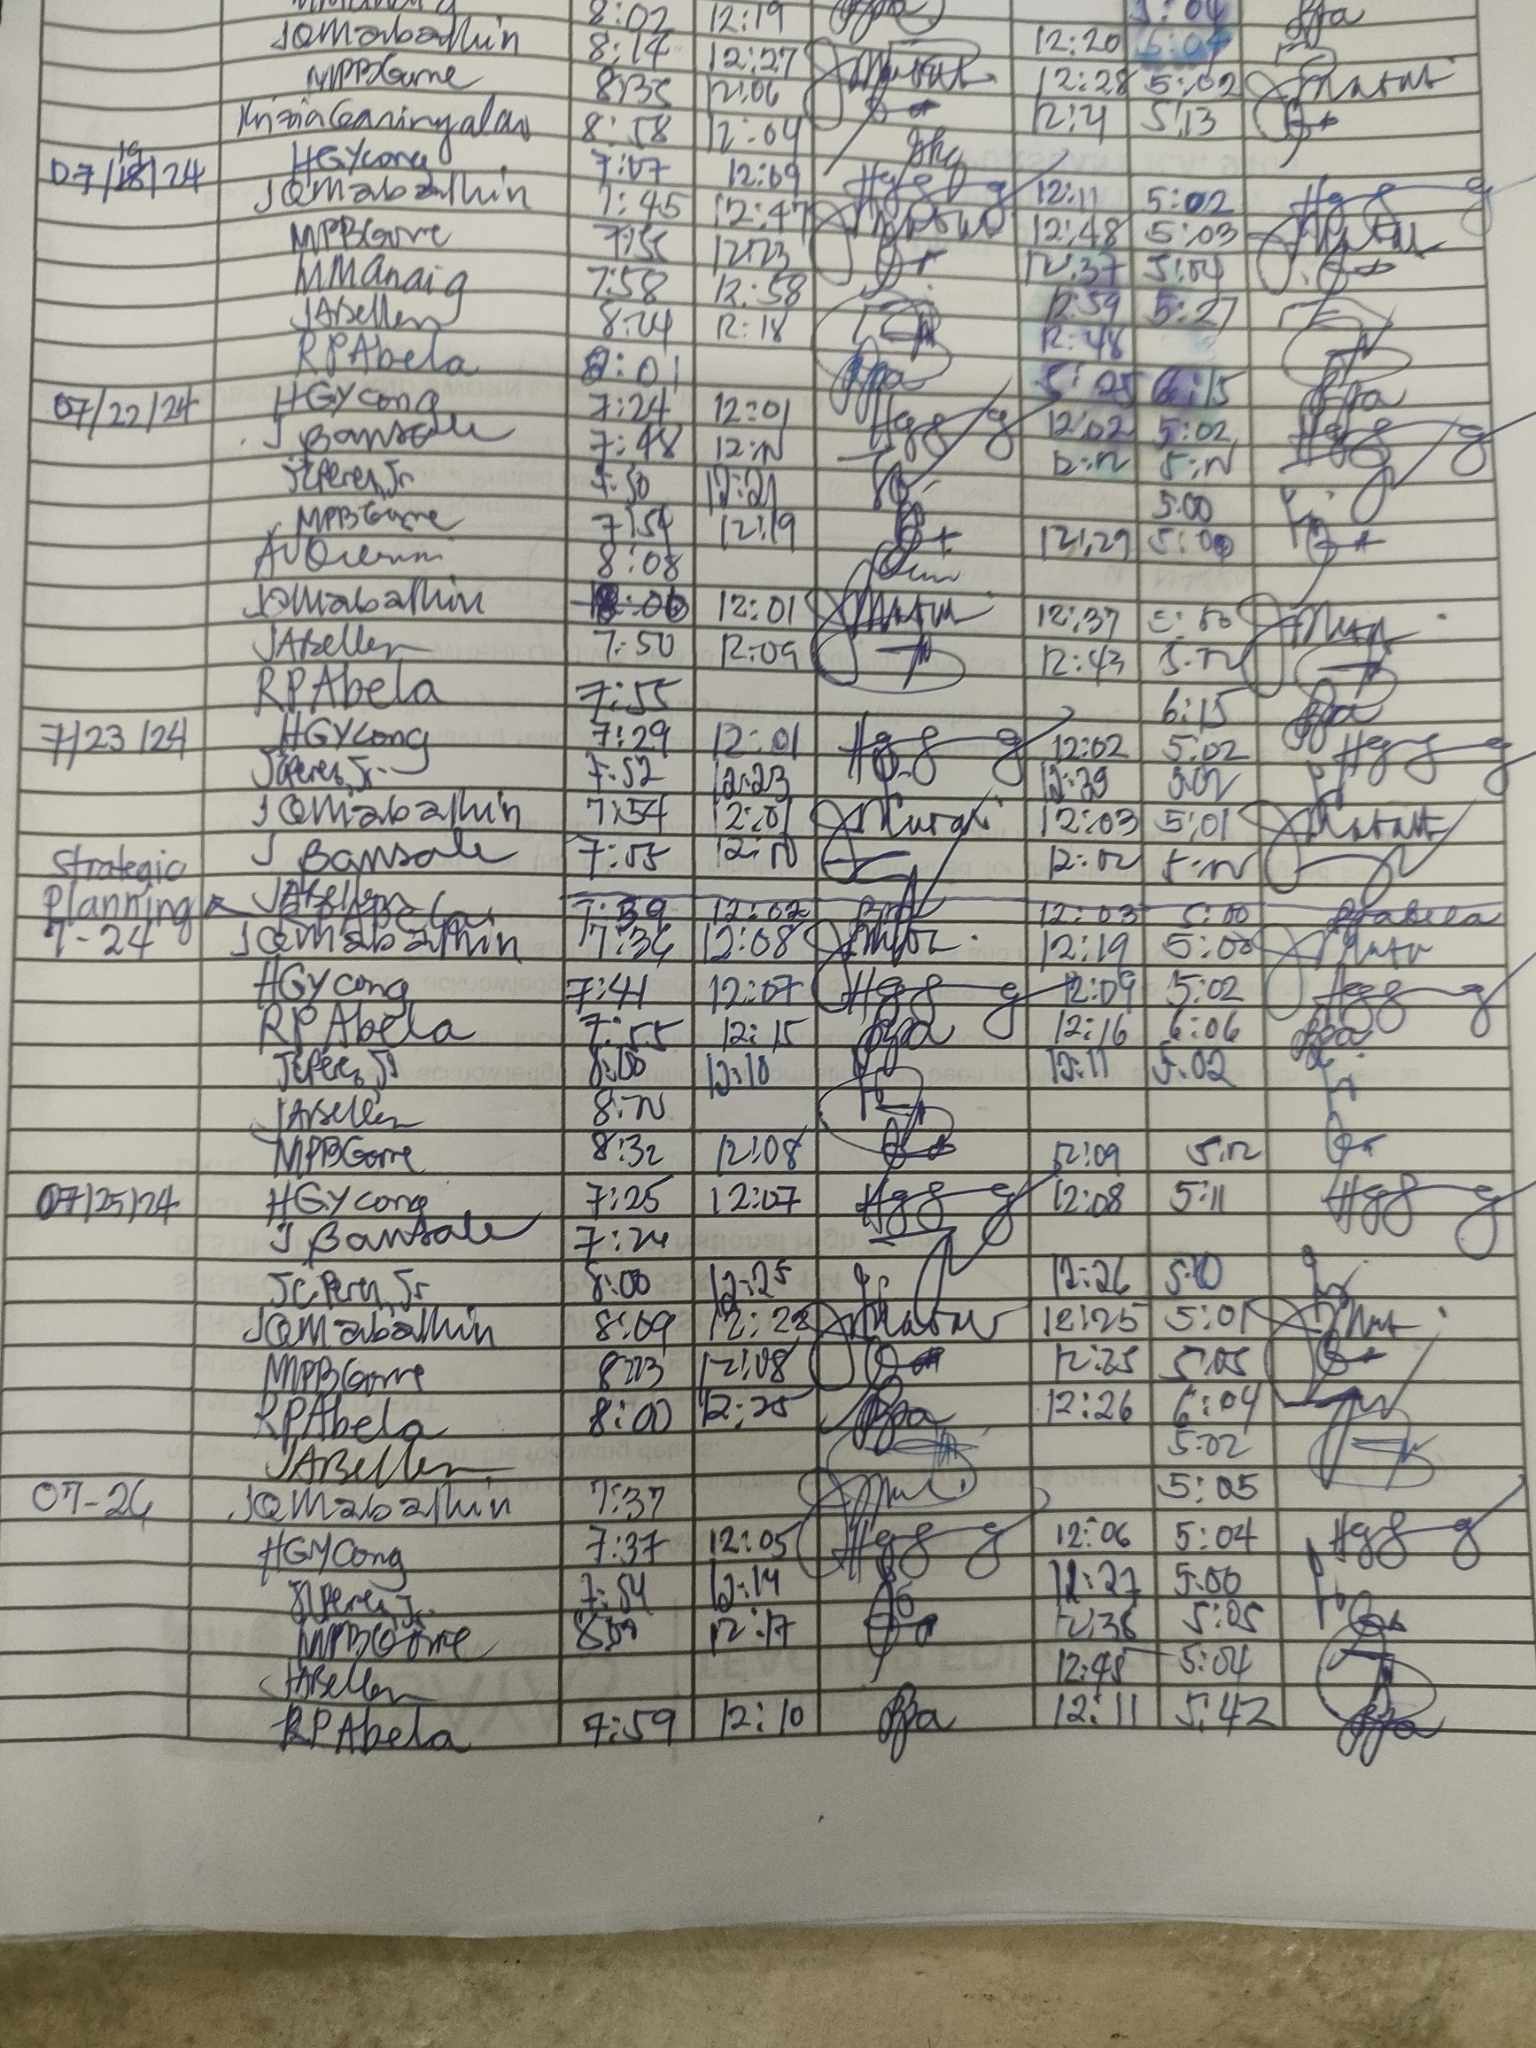 8:02 12:19
JQMabalhin 8:14 12:27 12:20
MPBGorre 8:35 12:06 12:28 5:02
8:58 12:04 12:21 5:13
07/19/24 HGYcong 7:07 12:09 12:11 5:02
JQMabalhin 7:45 12:47 12:48 5:03
MPBGorre 7:55 12:23 12:37 5:04
MManaig 7:58 12:58 12:59 5:27
JABellen 8:24 12:18 12:48
RPAbela 8:01 5:05 6:15
07/22/24 HGYcong 7:24 12:01 12:02 5:02
J Bansale 7:48 12:N 12:N 5:N
JCPeres, Jr 7:50 12:21 5:00
MPBGorre 7:54 12:19 12:29 5:00
8:08
JQMabalhin 8:00 12:01 12:37 5:00
JABellen 7:50 12:09 12:43
RPAbela 7:55 6:15
7/23/24 HGYcong 7:29 12:01 12:02 5:02
JCPeres, Jr. 7:52 12:23 12:29 5:02
JQMabalhin 7:54 12:01 12:03 5:01
J Bansale 7:55 12:N 12:02 5:N
Strategic
Planning JABellen
7:39 12:02 12:03 5:00 RPAbela
7-24 JQMabalhin 7:36 12:08 12:19 5:00
HGYcong 7:41 12:07 12:09 5:02
RPAbela 7:55 12:15 12:16 6:06
JCPeres, Jr 8:00 12:10 12:11 5:02
JABellen 8:N
MPBGorre 8:32 12:08 12:09 5:12
07/25/24 HGYcong 7:25 12:07 12:08 5:11
J Bansale 7:24
JCPeres, Jr 8:00 12:25 12:26 5:10
JQMabalhin 8:09 12:22 12:25 5:01
MPBGorre 8:13 12:08 12:25 5:05
RPAbela 8:00 12:25 12:26 6:04
JABellen 5:02
07-26 JQMabalhin 7:37 5:05
HGYcong 7:37 12:05 12:06 5:04
JCPeres, Jr. 7:54 12:14 12:27 5:00
MPBGorre 12:17 12:38 5:05
JABellen 12:48 5:04
RPAbela 7:59 12:10 12:11 5:42